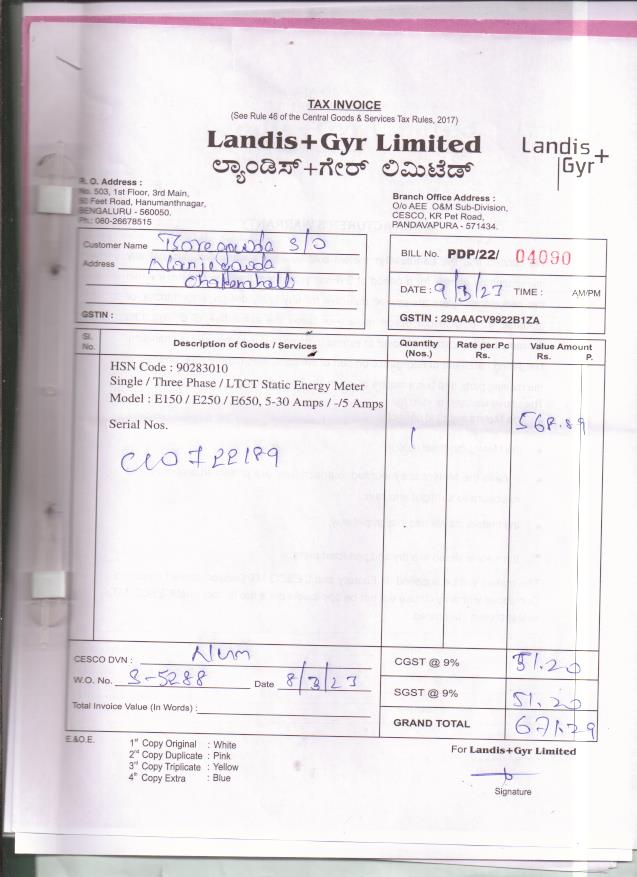 TAX INVOICE
(See Rule 46 of the Central Goods & Services Tax Rules, 2017)
Landis+Gyr Limited
ಲ್ಯಾಂಡಿಸ್+ಗೇರ್ ಲಿಮಿಟೆಡ್
Landis+
Gyr
R. O. Address :
No. 503, 1st Floor, 3rd Main,
80 Feet Road, Hanumanthnagar,
BENGALURU - 560050.
Ph.: 080-26678515
Branch Office Address :
O/o AEE O&M Sub-Division,
CESCO, KR Pet Road,
PANDAVAPURA - 571434.
Customer Name Boregowda S/O
Address
GSTIN :
BILL No. PDP/22/ 04090
DATE : 9/3/23 TIME : AM/PM
GSTIN : 29AAACV9922B1ZA
Sl. No. Description of Goods / Services Quantity (Nos.) Rate per Pc Rs. Value Amount Rs. P.
HSN Code : 90283010
Single / Three Phase / LTCT Static Energy Meter
Model : E150 / E250 / E650, 5-30 Amps / -/5 Amps
Serial Nos. 1 568.89
CESCO DVN :
W.O. No. S-5288 Date 8/3/23
Total Invoice Value (In Words) :
CGST @ 9% 51.20
SGST @ 9% 51.20
GRAND TOTAL 671.29
E.&O.E.
1st Copy Original : White
2nd Copy Duplicate : Pink
3rd Copy Triplicate : Yellow
4th Copy Extra : Blue
For Landis+Gyr Limited
Signature